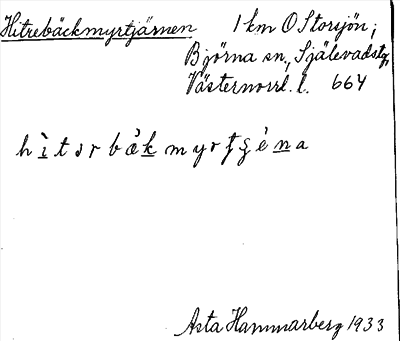 Hitrebäckmyrtjärnen 1 km O Storsjön;
Björna sn, Själevads tg,
Västernorrl. l. 664
Asta Hammarberg 1933